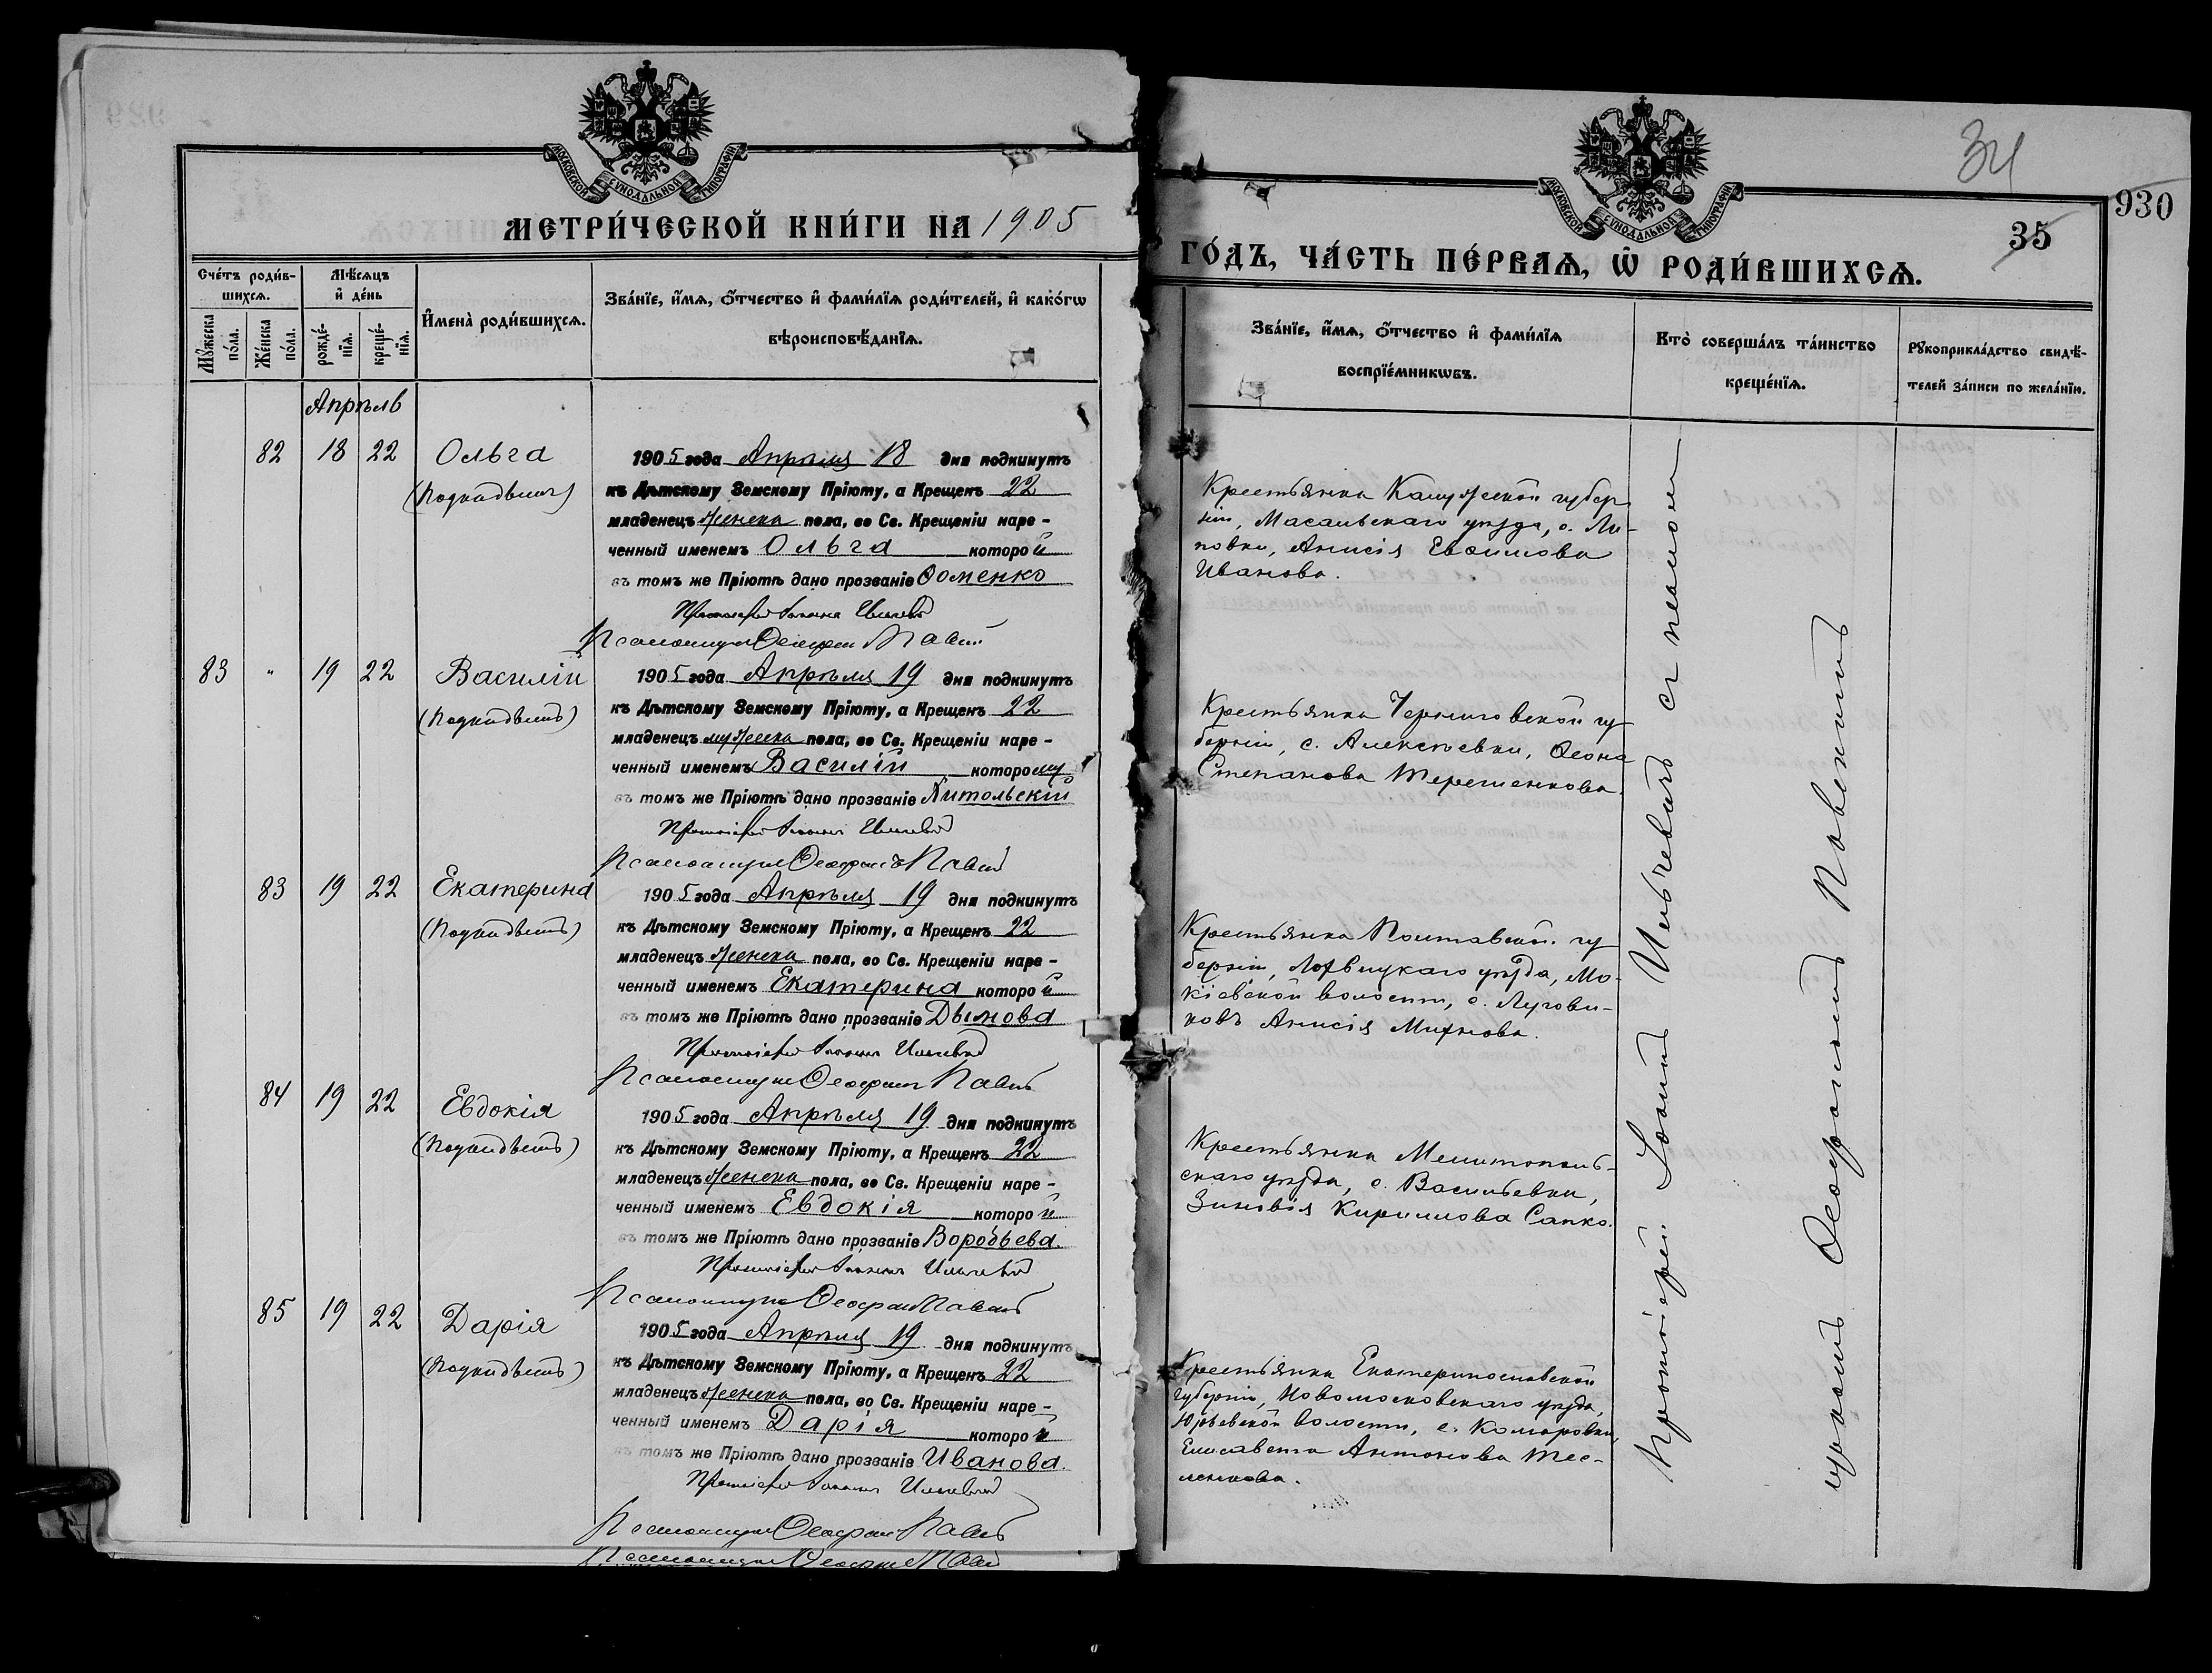 МОСКОВСКОЙ СУНОДАЛЬНОЙ ТИПОГРАФІИ
МЕТРИ́ЧЕСКОЙ КНИ́ГИ НА 1905
Сче́тъ роди́в-
шихсѧ.
Мѣ́сѧцъ
и҆ де́нь
Мꙋ́жеска
по́ла.
Же́нска
по́ла.
рожде́-
нїѧ.
креще́-
нїѧ.
И҆мена̀ роди́вшихсѧ.
Зва́нїе, и҆́мѧ, ѻ҆́тчество и҆ фами́лїѧ роди́телей, и҆ како́гѡ
вѣроисповѣ́данїѧ.
Апрѣль
82 18 22 Ольга
(Подкидышъ)
1905 года Апрѣля 18 дня подкинутъ
къ Дѣтскому Земскому Пріюту, а Крещенъ 22
младенецъ женска пола, во Св. Крещеніи наре-
ченный именемъ Ольга которой
въ томъ же Пріютѣ дано прозваніе Ѳоменко
Протоіерей Іоаннъ Ильчевичъ
Псаломщикъ Ѳеофанъ
83 " 19 22 Василій
(Подкидышъ)
1905 года Апрѣля 19 дня подкинутъ
къ Дѣтскому Земскому Пріюту, а Крещенъ 22
младенецъ мужеска пола, во Св. Крещеніи наре-
ченный именемъ Василій которому
въ томъ же Пріютѣ дано прозваніе
Протоіерей Іоаннъ Ильчевичъ
Псаломщикъ Ѳеофанъ
83 19 22 Екатерина
(Подкидышъ)
1905 года Апрѣля 19 дня подкинутъ
къ Дѣтскому Земскому Пріюту, а Крещенъ 22
младенецъ женска пола, во Св. Крещеніи наре-
ченный именемъ Екатерина которой
въ томъ же Пріютѣ дано прозваніе Дымова
Протоіерей Іоаннъ Ильчевичъ
Псаломщикъ Ѳеофанъ
84 19 22 Евдокія
(Подкидышъ)
1905 года Апрѣля 19 дня подкинутъ
къ Дѣтскому Земскому Пріюту, а Крещенъ 22
младенецъ женска пола, во Св. Крещеніи наре-
ченный именемъ Евдокія которой
въ томъ же Пріютѣ дано прозваніе Воробьева.
Протоіерей Іоаннъ Ильчевичъ
Псаломщикъ Ѳеофанъ
85 19 22 Дарія
(Подкидышъ)
1905 года Апрѣля 19 дня подкинутъ
къ Дѣтскому Земскому Пріюту, а Крещенъ 22
младенецъ женска пола, во Св. Крещеніи наре-
ченный именемъ Дарія которой
въ томъ же Пріютѣ дано прозваніе Иванова.
Протоіерей Іоаннъ Ильчевичъ
Псаломщикъ Ѳеофанъ
Псаломщикъ Ѳеофанъ
34
930
35
МОСКОВСКОЙ СУНОДАЛЬНОЙ ТИПОГРАФІИ
ГО́ДЪ, ЧА́СТЬ ПЕ́РВАѦ, Ѡ҆ РОДИ́ВШИХСѦ.
Зва́нїе, и҆́мѧ, ѻ҆́тчество и҆ фами́лїѧ
воспрїе́мникѡвъ.
Кто̀ соверша́лъ та́инство
креще́нїѧ.
Рꙋкоприкла́дство свидѣ́-
телей за́писи по жела́нїю.
Крестьянка Калужской губер-
ніи, Масальскаго уѣзда, с. Ли-
повки, Анисія Евфимова
Иванова.
Крестьянка Черниговской гу-
берніи, с. Алексѣевки, Ѳеона
Степанова Терещенкова.
Крестьянка Полтавской гу-
берніи, Лохвицкаго уѣзда, Мо-
кіевской волости, с. Лугови-
ковъ Анисія
Крестьянка Мелитополь-
скаго уѣзда, с. Васильевки,
Зиновія Кириллова Сапко.
Крестьянка Екатеринославской
губерніи, Новомосковскаго уѣзда,
Юрьевской волости, с. Комаровки,
Елисавета Антонова Тес-
ленкова.
Протоіерей Іоаннъ Ильчевичъ съ псалом-
щикомъ Ѳеофаномъ